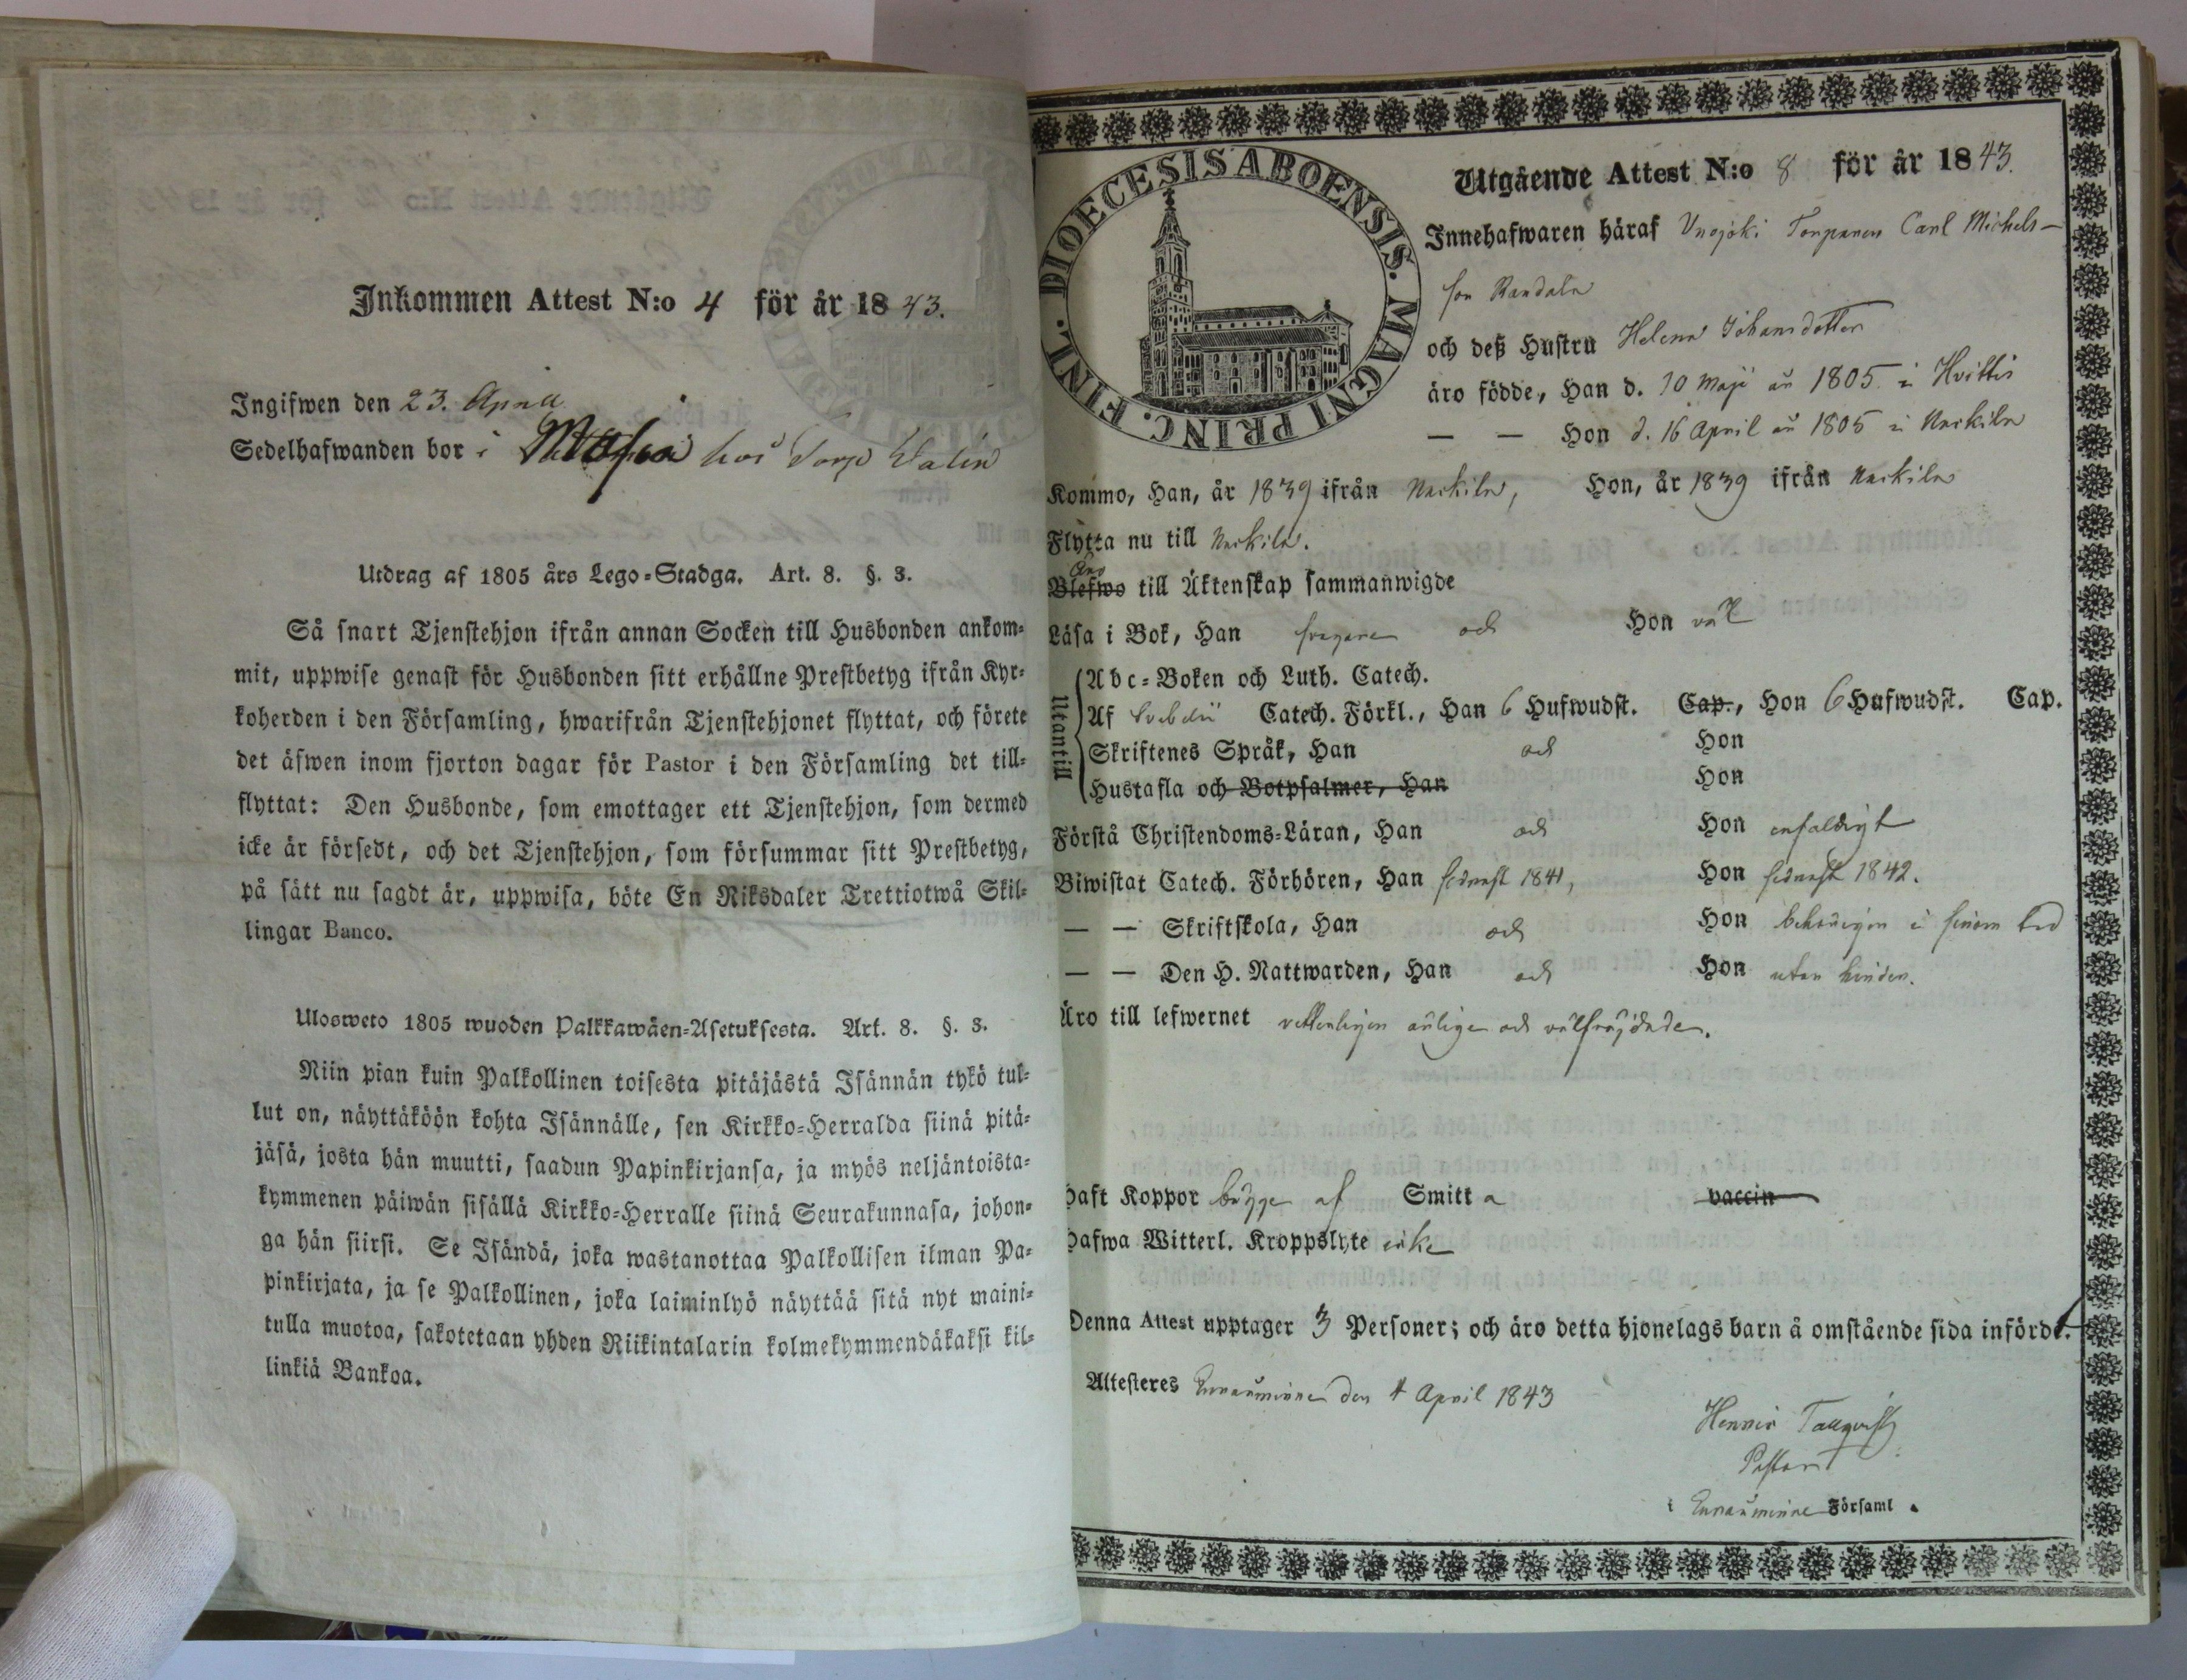 Inkommen Attest N:o 4 för år 1843.
Ingifwen den 23. April
Sedelhafwanden bor i hos Torp
Utdrag af 1805 års Lego-Stadga. Art. 8. §. 3.
Så snart Tjenstehjon ifrån annan Socken till Husbonden ankom-
mit, uppwise genast för Husbonden sitt erhållne Prestbetyg ifrån Kyr-
koherden i den Församling, hwarifrån Tjenstehjonet flyttat, och förete
det äfwen inom fjorton dagar för Pastor i den Församling det till-
flyttat: Den Husbonde, som emottager ett Tjenstehjon, som dermed
icke är försedt, och det Tjenstehjon, som försummar sitt Prestbetyg,
på sätt nu sagdt är, uppwisa, böte En Riksdaler Trettiotwå Skil-
lingar Banco.
Ulosweto 1805 wuoden Palkkawäen-Asetuksesta. Art. 8. §. 3.
Niin pian kuin Palkollinen toisesta pitäjästä Isännän tykö tul-
lut on, näyttäköön kohta Isännälle, sen Kirkko-Herralda siinä pitä-
jäsä, josta hän muutti, saadun Papinkirjansa, ja myös neljäntoista-
kymmenen päiwän sisällä Kirkko-Herralle siinä Seurakunnasa, johon-
ga hän siirsi. Se Isändä, joka wastanottaa Palkollisen ilman Pa-
pinkirjata, ja se Palkollinen, joka laiminlyö näyttää sitä nyt maini-
tulla muotoa, sakotetaan yhden Riikintalarin kolmekymmendäkaksi kil-
linkiä Bankoa.
DIOECESIS ABOENSIS. MAGNI PRINC. FINL.
Utgående Attest N:o 8 för år 1843.
Innehafwaren häraf Torparen Carl Michels-
son Randala
och deß Hustru Helena Johansdotter
äro födde, Han d. 10 Maji år 1805 i Hvittis
— — Hon d. 16 April år 1805 i Nackila
Kommo, Han, år 1839 ifrån Nackila, Hon, år 1839 ifrån Nackila
Flytta nu till Nackila.
Äro
Blefwo till Äktenskap sammanwigde
Läsa i Bok, Han svagare och Hon väl
Utantill
Abc-Boken och Luth. Catech.
Af Svebelii Catech. Förkl., Han 6 Hufwudst. Cap., Hon 6 Hufwudst. Cap.
Skriftenes Språk, Han och Hon
Hustafla och Botpsalmer, Han Hon
Förstå Christendoms-Läran, Han och Hon enfaldigt
Biwistat Catech. Förhören, Han sednast 1841, Hon sednast 1842.
— — Skriftskola, Han och Hon behörigen i sinom tid
— — Den H. Nattwarden, Han och Hon utan hinder.
Äro till lefwernet vetterligen ärlige och välfräjdade.
Haft Koppor bägge af Smitta vaccin
Hafwa Witterl. Kroppslyte icke
Denna Attest upptager 3 Personer; och äro detta hjonelags barn å omstående sida införde.
Attesteres Euraåminne den 4 April 1843
Henric Tallqvist
Pastor
i Euraåminne Församl.